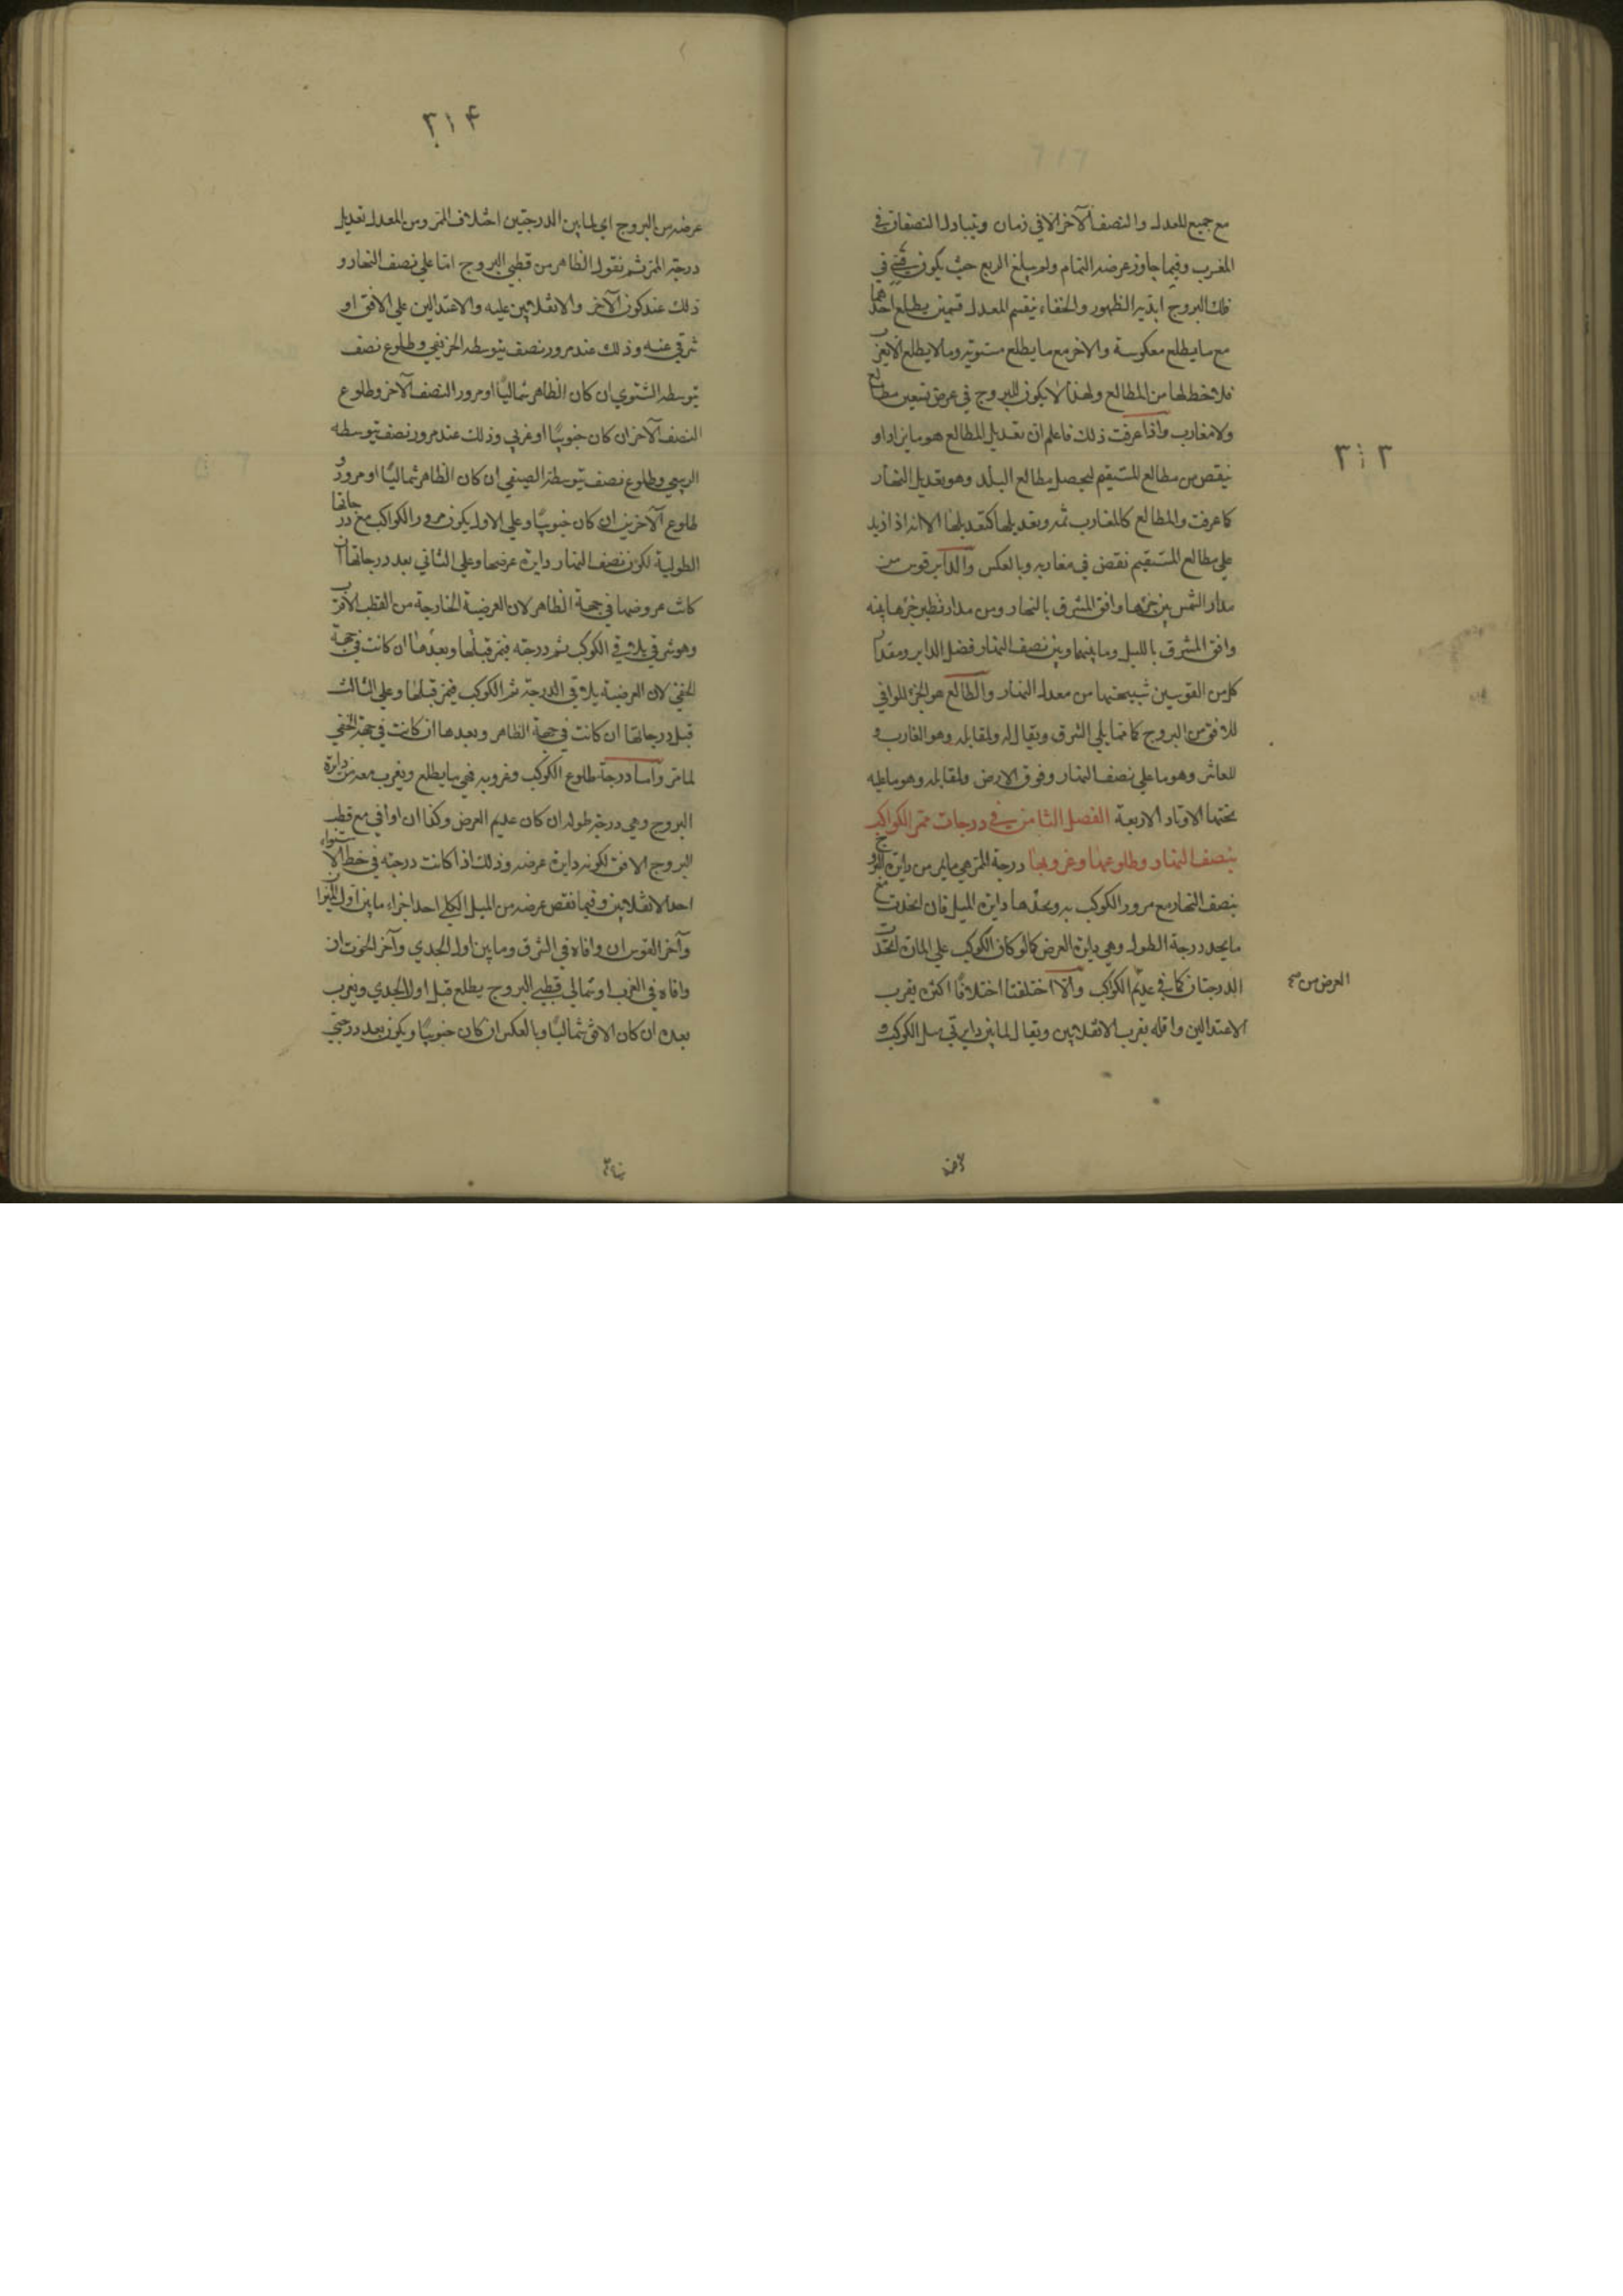 ٣١٣
مع جميع المعدل والنصف الآخر الا في زمان ويتبادل النصفان في
المغرب وفيما جاوز عرضه التمام ولم يبلغ الربع حيث يكون في
فلك البروج ابدية الظهور والخفاء ينقسم المعدل قسمين يطلع احدهما
مع ما يطلع معكوسة والاخر مع ما يطلع مستوية وما لا يطلع لا يغرب
فلا حظ لها من المطالع ولهذا لا يكون للبروج في عرض تسعين مطالع
ولا مغارب واذا عرفت ذلك فاعلم ان تعديل المطالع هو ما يزاد او
ينقص من مطالع المستقيم ليحصل مطالع البلد وهو تعديل النهار
كما عرفت والمطالع كالمغارب ثمه وتعديلها كتعديلها الا انه اذا زيد
على مطالع المستقيم نقص في مغاربه وبالعكس والداير قوس من
مدار الشمس بين جزءها وافق المشرق بالنهار ومن مدار نظير جزءها بينه
وافق المشرق بالليل وما بينهما وبين نصف النهار فضل الداير ومقدار
كل من القوسين شبيهتهما من معدل النهار والطالع هو الجزء الموافي
للافق من البروج كما مما يلي الشرق ويقال له ولمقابله وهو الغارب و
للعاشر وهو ما على نصف النهار وفوق الارض ولمقابله وهو ما يليه
تحتها الاوتاد الاربعة الفصل الثامن في درجات ممر الكواكب
بنصف النهار وطلوعها وغروبها درجة الممر هي ما يمر من دايرة البروج
بنصف النهار مع مرور الكوكب به ويحدها دايرة الميل فان اتحدت مع
ما يحد درجة الطول وهي دايرة العرض كما لو كان الكوكب على المارة اتحدت
الدرجتان كما في عديم الكواكب والا اختلفتا اختلافا اكثره بقرب
العرض من صح
الاعتدالين واقله بقرب الانقلابين ويقال لما بين دايرتي ميل الكوكب و
لاخر
٣١٤
عرضه من البروج اي لما بين الدرجتين اختلاف الممر ومن المعدل تعديل
درجة الممر ثم نقول الظاهر من قطبي البروج اما على نصف النهار و
ذلك عند كون الآخر والانقلابين عليه والاعتدالين على الافق او
شرقي عنه وذلك عند مرور نصف يتوسطه الخريفي وطلوع نصف
يتوسطه الشتوي ان كان الظاهر شماليا او مرور النصف الآخر وطلوع
النصف الآخر ان كان جنوبيا او غربي وذلك عند مرور نصف يتوسطه
الربيعي وطلوع نصف يتوسطه الصيفي ان كان الظاهر شماليا او مرور و
طلوع الآخرين ان كان جنوبيا وعلى الاول يكون مرور الكواكب مع درجاتها
الطولية لكون نصف النهار دايرة عرضها وعلى الثاني بعد درجاتها ان
كانت عروضها في جهة الظاهر لان العرضية الخارجة من القطب الاقرب
وهو شرقي يلاقي الكوكب ثم درجته فيمر قبلها وبعدها ان كانت في جهة
الخفي لان العرضية يلاقي الدرجة ثم الكوكب فيمر قبلها وعلى الثالث
قبل درجاتها ان كانت في جهة الظاهر وبعدها ان كانت في جهة الخفي
لما مر واما درجة طلوع الكوكب وغروبه فهي ما يطلع ويغرب معه من دايرة
البروج وهي درجة طوله ان كان عديم العرض وكذا ان اوافى مع قطب
البروج الافق لكونه دايرة عرضه وذلك اذا كانت درجته في خط الاستواء
احد الانقلابين وفيما نقص عرضه من الميل الكلي احد اجزاء ما بين اول الميزان
وآخر القوس ان وافاه في الشرق وما بين اول الجدي وآخر الحوت ان
وافاه في الغرب او شمالي قطبي البروج يطلع قبل اول الجدي ويغرب
بعده ان كان الافق شماليا وبالعكس ان كان جنوبيا ويكون بعد درجتي